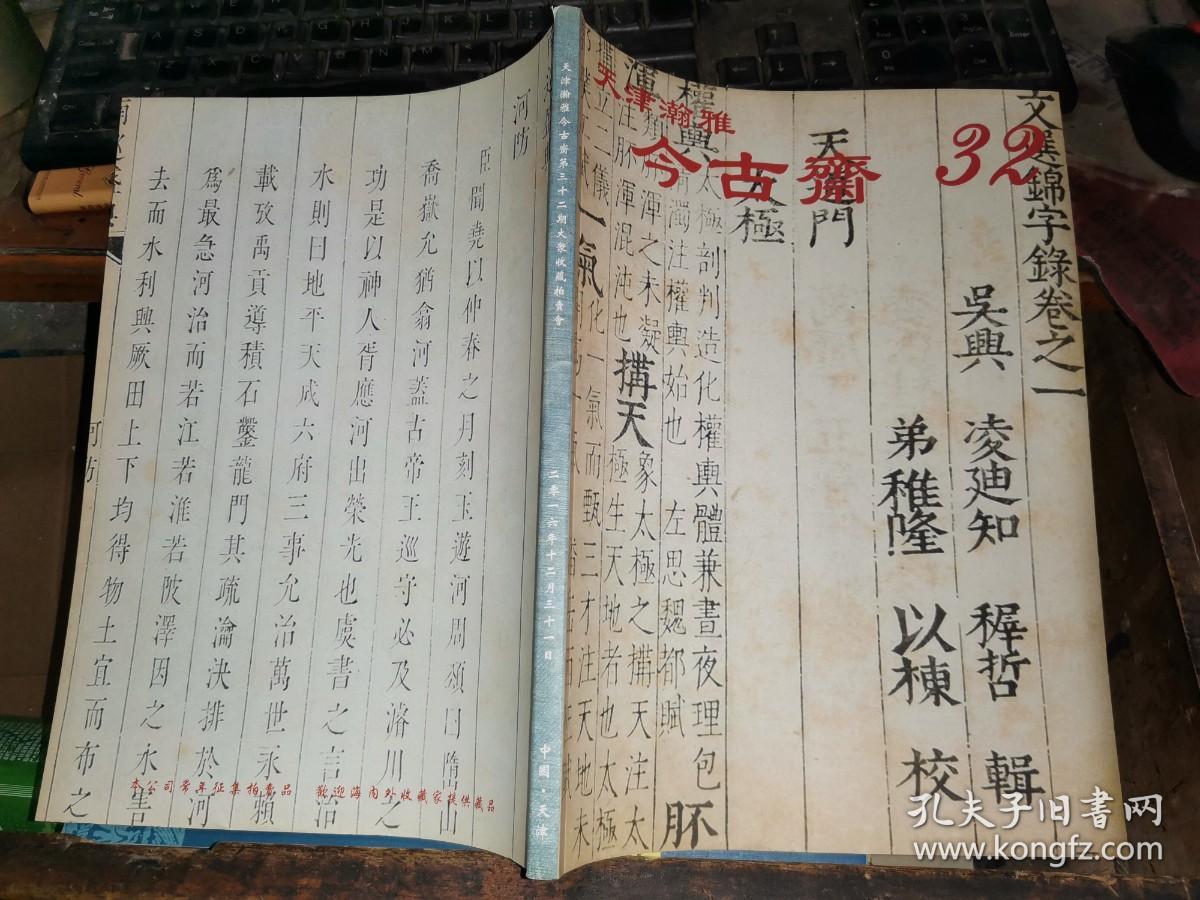 天津瀚雅
今古齋 32
文選錦字錄卷之一
吳興 凌迪知 穉哲 輯
弟稚隆 以棟 校
天道門
太極
權輿太極剖判造化權輿體兼晝夜理包
清濁注權輿始也 左思魏都賦
胚渾
搆天象太極之搆天注太
極生天地者也太極
一氣化一氣而甄三才注天地未
天津瀚雅今古齋第三十二期大衆收藏拍賣會
二零一六年十二月三十一日
中國·天津
河防
臣聞堯以仲春之月刻玉遊河周頌曰隋山
喬嶽允猶翕河蓋古帝王巡守必及濬川之
功是以神人胥應河出榮光也虞書之言治
水則曰地平天成六府三事允治萬世永賴
載攷禹貢導積石鑿龍門其疏瀹決排於河
爲最急河治而若江若淮若陂澤因之永害
去而水利興厥田上下均得物土宜而布之
河防
本公司常年征集拍賣品 歡迎海内外收藏家提供藏品
孔夫子旧书网
www.kongfz.com